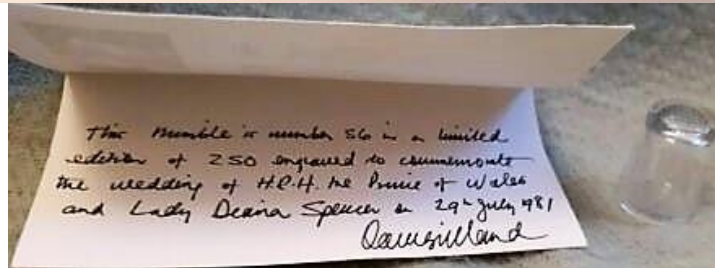 This thimble is number 56 in a limited
edition of 250 engraved to commemorate
the wedding of H.R.H. the Prince of Wales
and Lady Diana Spencer on 29th July 1981